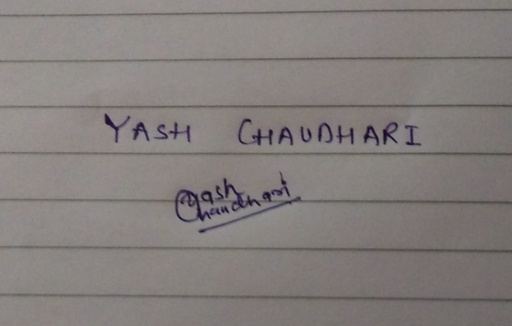 YASH CHAUDHARI
Yash
Chaudhari